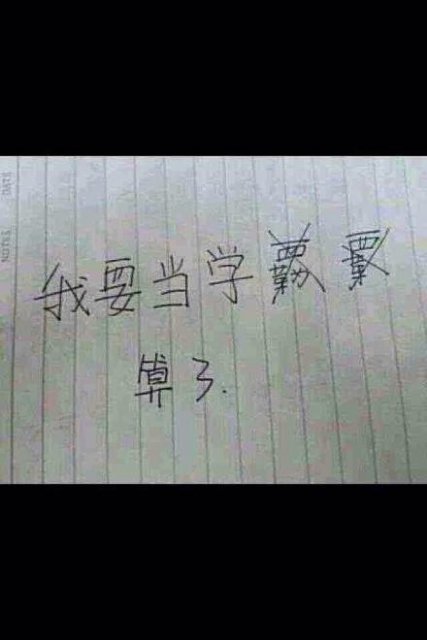 我要当学
算了.
NOTES DATE